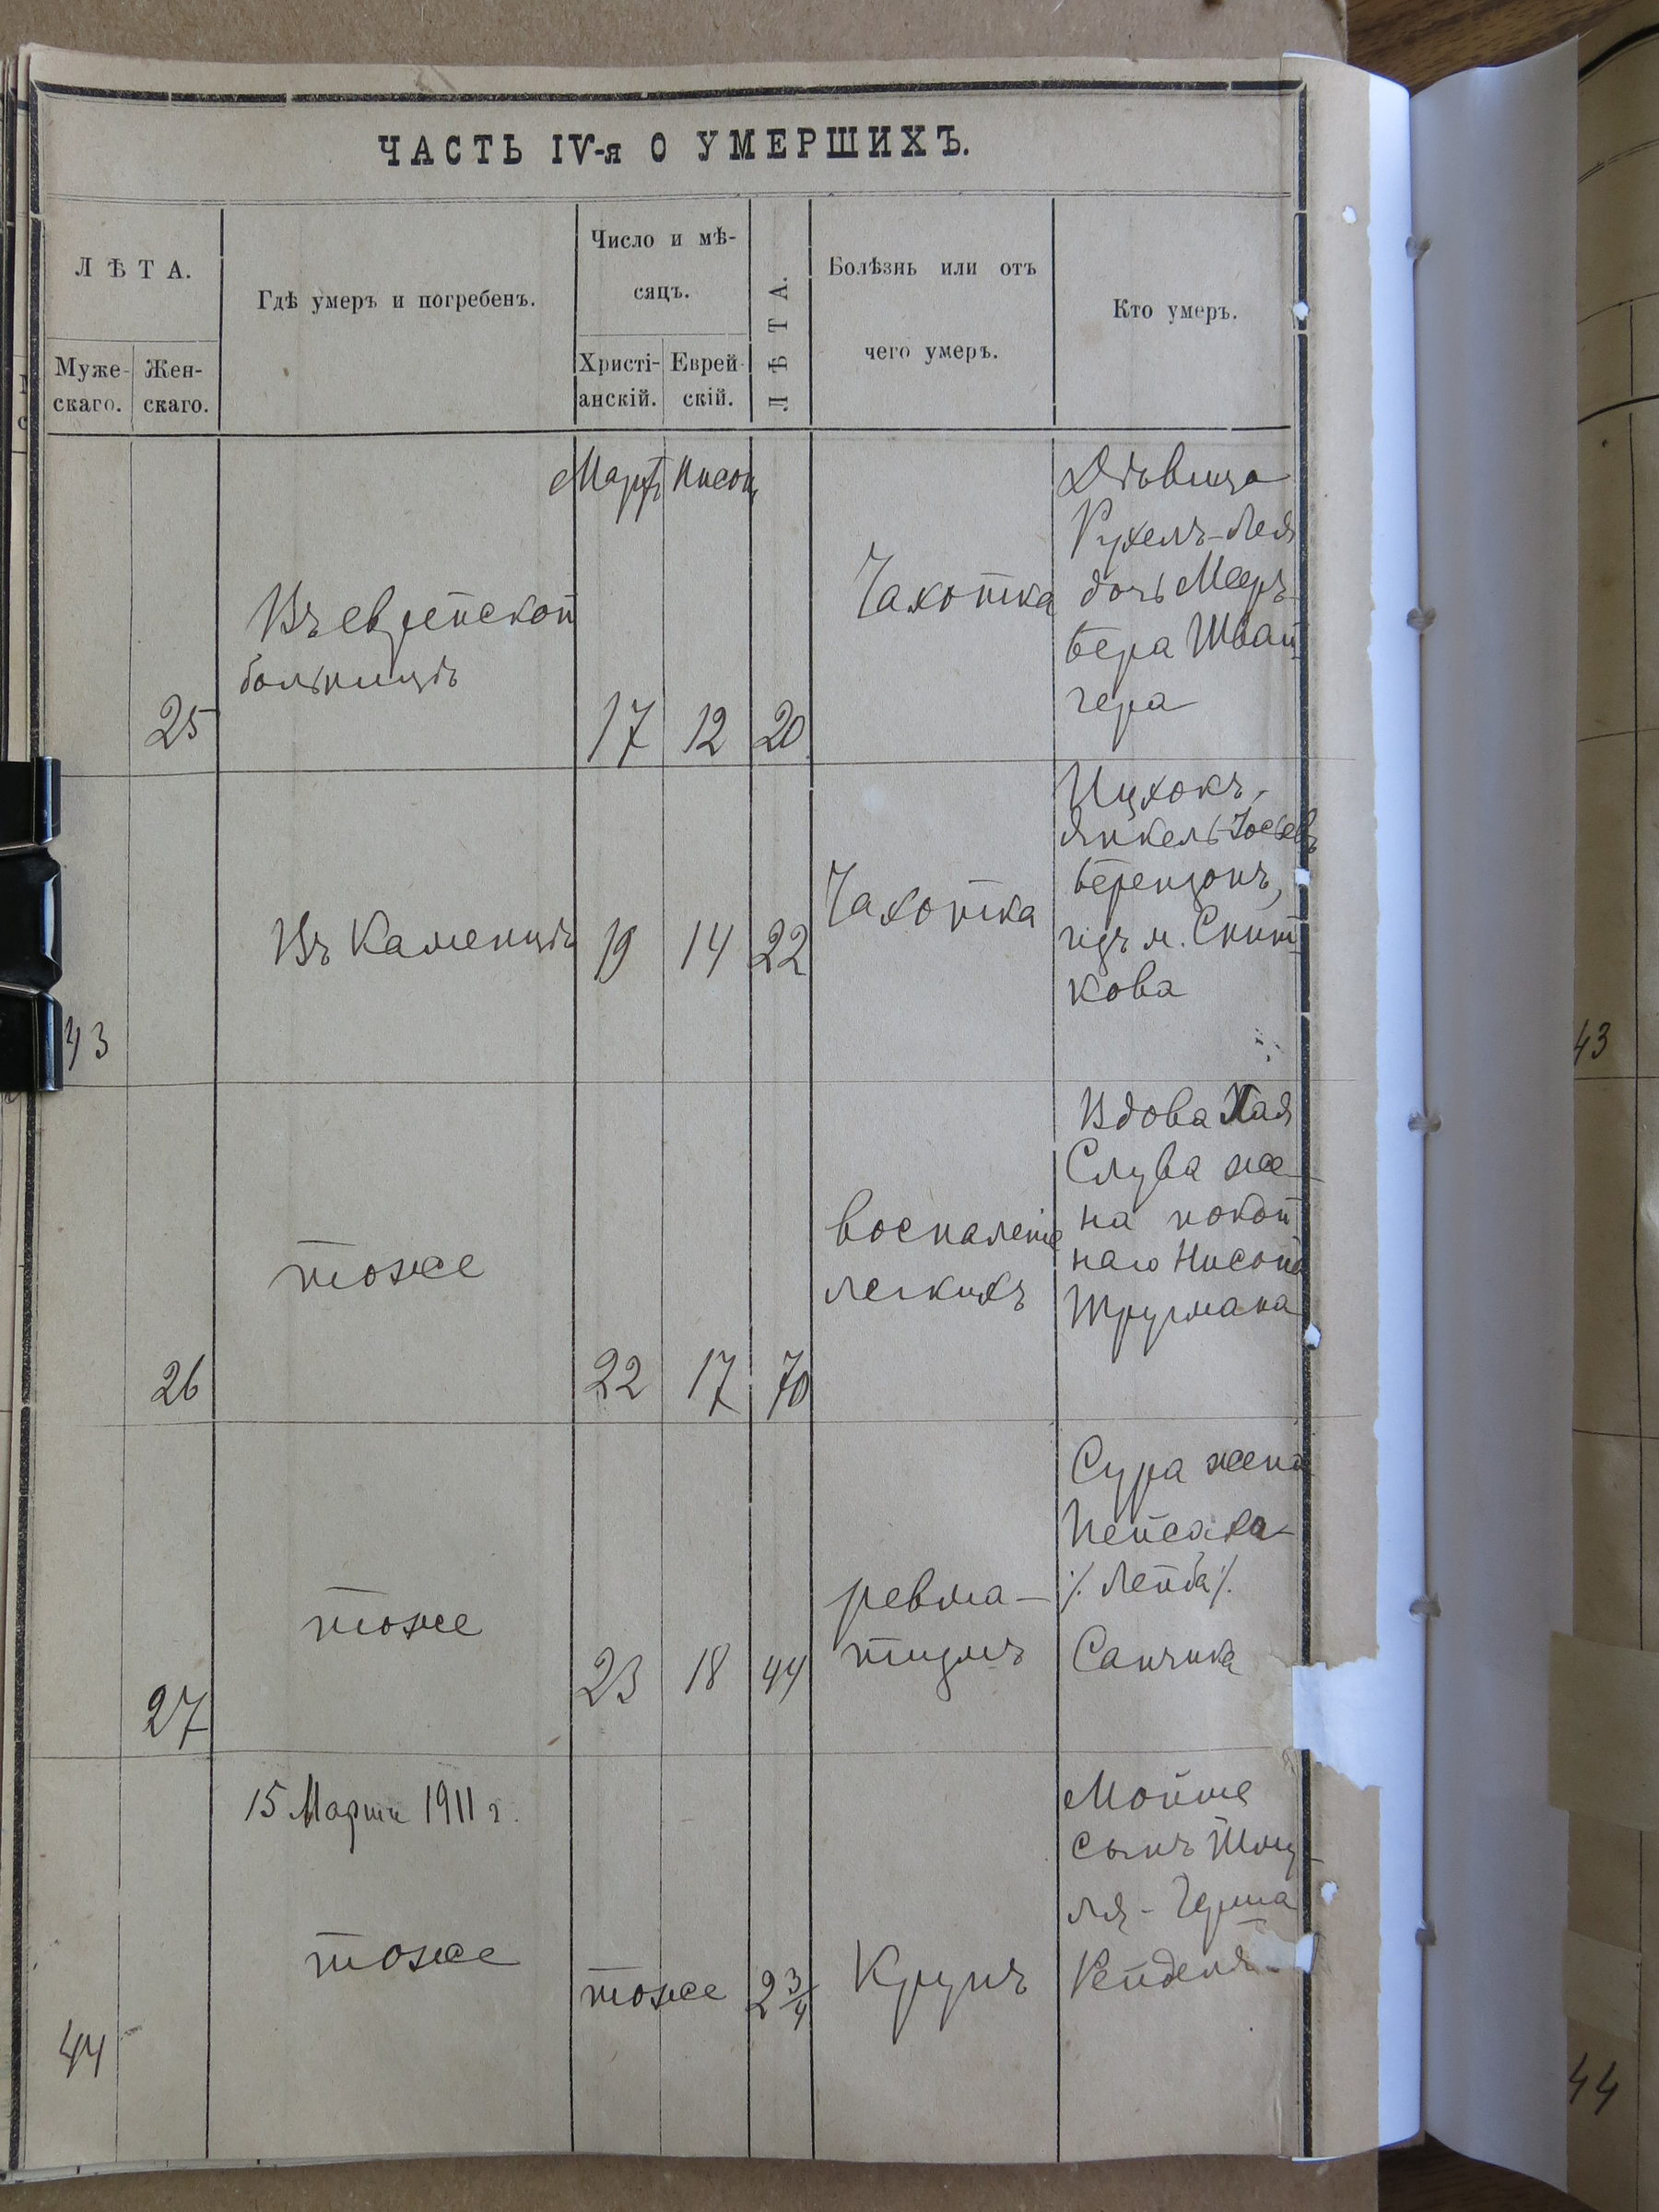 ЧАСТЬ IV-я О УМЕРШИХЪ.
ЛѢТА.
Муже-
скаго.
Жен-
скаго.
Гдѣ умеръ и погребенъ.
Число и мѣ-
сяцъ.
Христі-
анскій.
Еврей-
скій.
ЛѢТА.
Болѣзнь или отъ
чего умеръ.
Кто умеръ.
25
Въ еврейской
больницѣ
Мартъ
Нисонъ
17
12
20
Чахотка
Дѣвица
Рухель-Лея
дочь Мееръ-
Бера Швай-
гера
43
Въ Каменцѣ
19
14
22
Чахотка
Ицхокъ-
Янкель Іосьевъ
Берензонъ,
изъ м. Снит-
кова
26
тоже
22
17
70
воспаленіе
легкихъ
Вдова Хая
Слува же-
на покой-
наго Нисона
Трурмана
27
тоже
23
18
44
ревма-
тизмъ
Сура жена
Пейсаха-
·/. Лейба ·/.
Санчика
15 Марта 1911 г.
44
тоже
тоже
2 3/4
Крупъ
Мойше
сынъ
Герша
43
44